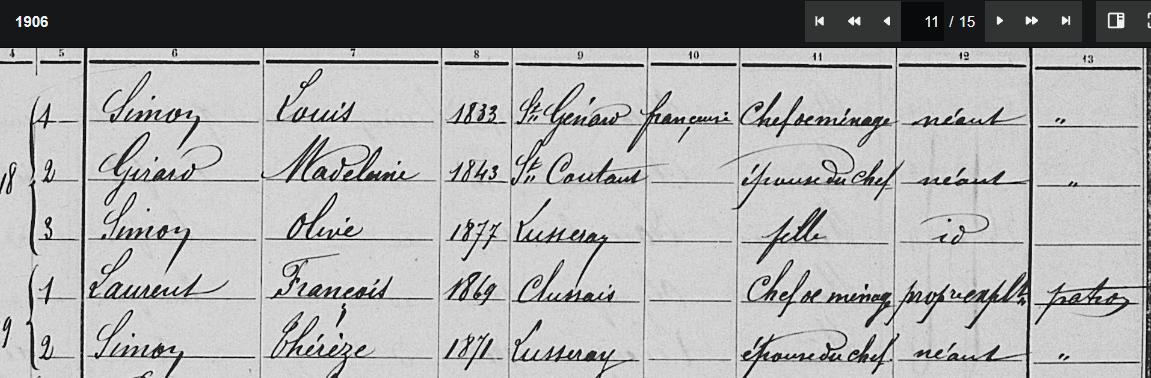 1906 11 / 15
4 5 6 7 8 9 10 11 12 13
1 Simon Louis 1833 St Génard française Chef de ménage néant "
18 2 Girard Madeleine 1843 St Coutant épouse du chef néant "
3 Simon Olive 1877 Lusseray fille id
1 Laurent François 1869 Clussais Chef de ménage propre explt patron
9 2 Simon Thérèze 1871 Lusseray épouse du chef néant "